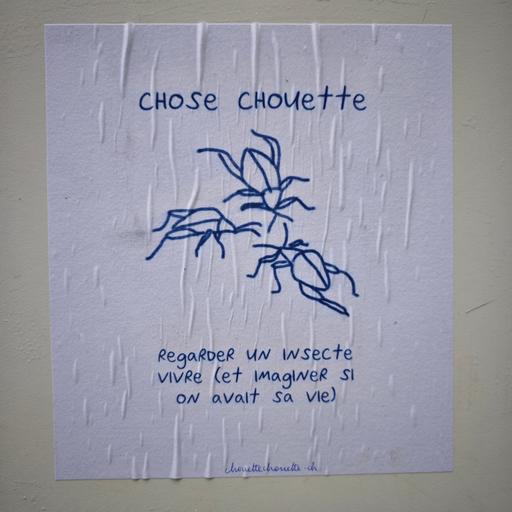 CHOSE CHOUETTE
REGARDER UN INSECTE
VIVRE (ET IMAGINER SI
ON AVAIT SA VIE)
chouettechouette.ch